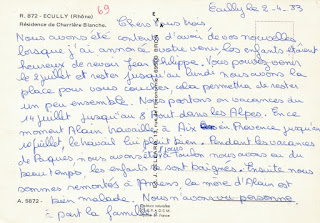 R. 872 - ECULLY (Rhône)
Résidence de Charrière Blanche.
69
Ecully le 2.4.83
Chers tous trois
Nous avons été contents d'avoir de vos nouvelles
lorsque j'ai annoncé votre venu, les enfants étaient
heureux de revoir Jean Philippe. Vous pouvez venir
le 2 juillet et rester jusqu'au lundi nous avons la
place pour vous coucher, cela permettra de rester
un peu ensemble. Nous partons en vacances du
14 juillet jusqu'au 8 Aout dans les Alpes. En ce
moment Alain travaille à Aix en Provence jusqu'au
10 juillet, le travail lui plait bien. Pendant les vacances
de Paques nous avons été 2 jours à Toulon nous avons eu du
beau temps, les enfants se sont baignés. Ensuite nous
sommes remontés à Amiens, la mère d'Alain est
A. 5872. - bien malade. Nous n'avons vu personne
à part la famille